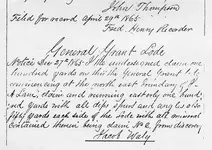 John Thompson
Filed for record April 29th 1865.
Fred. Henry Recorder
General Grant Lode
Notice Nov 27th 1865 I the undersigned claim one
hundred yards on this the General Grant
commencing at the north east boundary of
claim and running easterly one hund
red yards with all dips spurs and angles also
fifty yards each side of the Lode with all mineral
contained therein being claim No from discovery
Jacob Waly